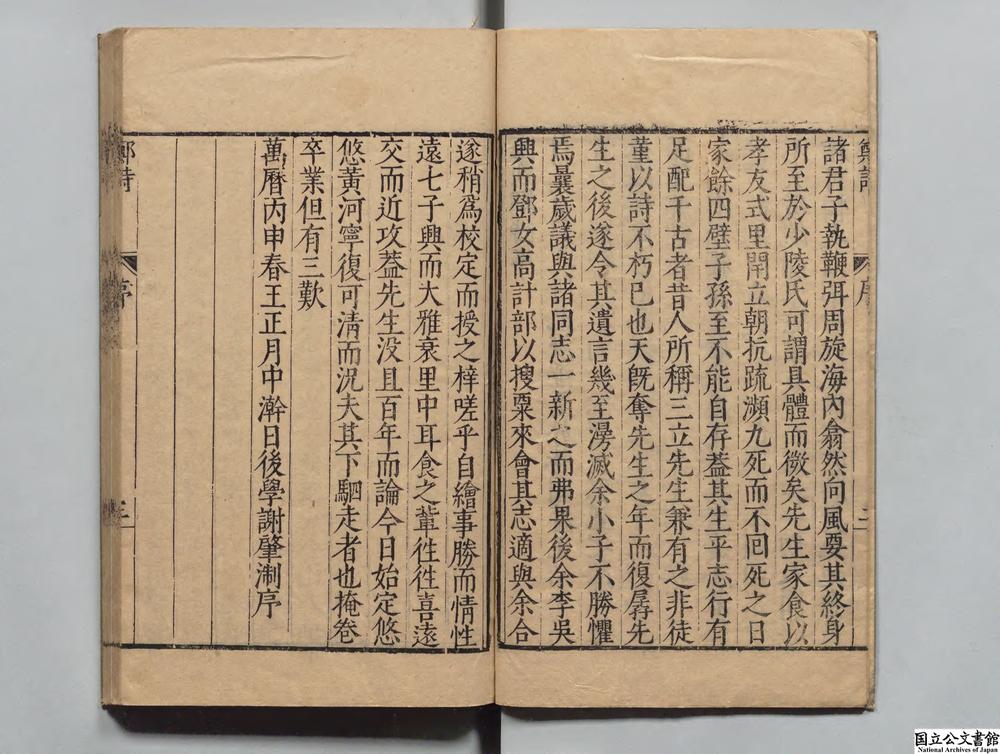 諸君子執鞭弭周旋海內翕然向風要其終身
所至於少陵氏可謂具體而微矣先生家食以
孝友式里閈立朝抗疏瀕九死而不囘死之日
家餘四壁子孫至不能自存蓋其生平志行有
足配千古者昔人所稱三立先生兼有之非徒
董以詩不朽已也天旣奪先生之年而復孱先
生之後遂令其遺言幾至漫滅余小子不勝懼
焉曩歲議與諸同志一新之而弗果後余李吳
興而鄧女高計部以搜粟來會其志適與余合
遂稍爲校定而授之梓嗟乎自繪事勝而情性
遠七子興而大雅衰里中耳食之輩徃徃喜遠
交而近攻蓋先生没且百年而論今日始定悠
悠黃河寧復可清而況夫其下駟走者也掩卷
卒業但有三歎
萬曆丙申春王正月中澣日後學謝肇淛序
鄭詩
序
三
序
二
国立公文書館
National Archives of Japan